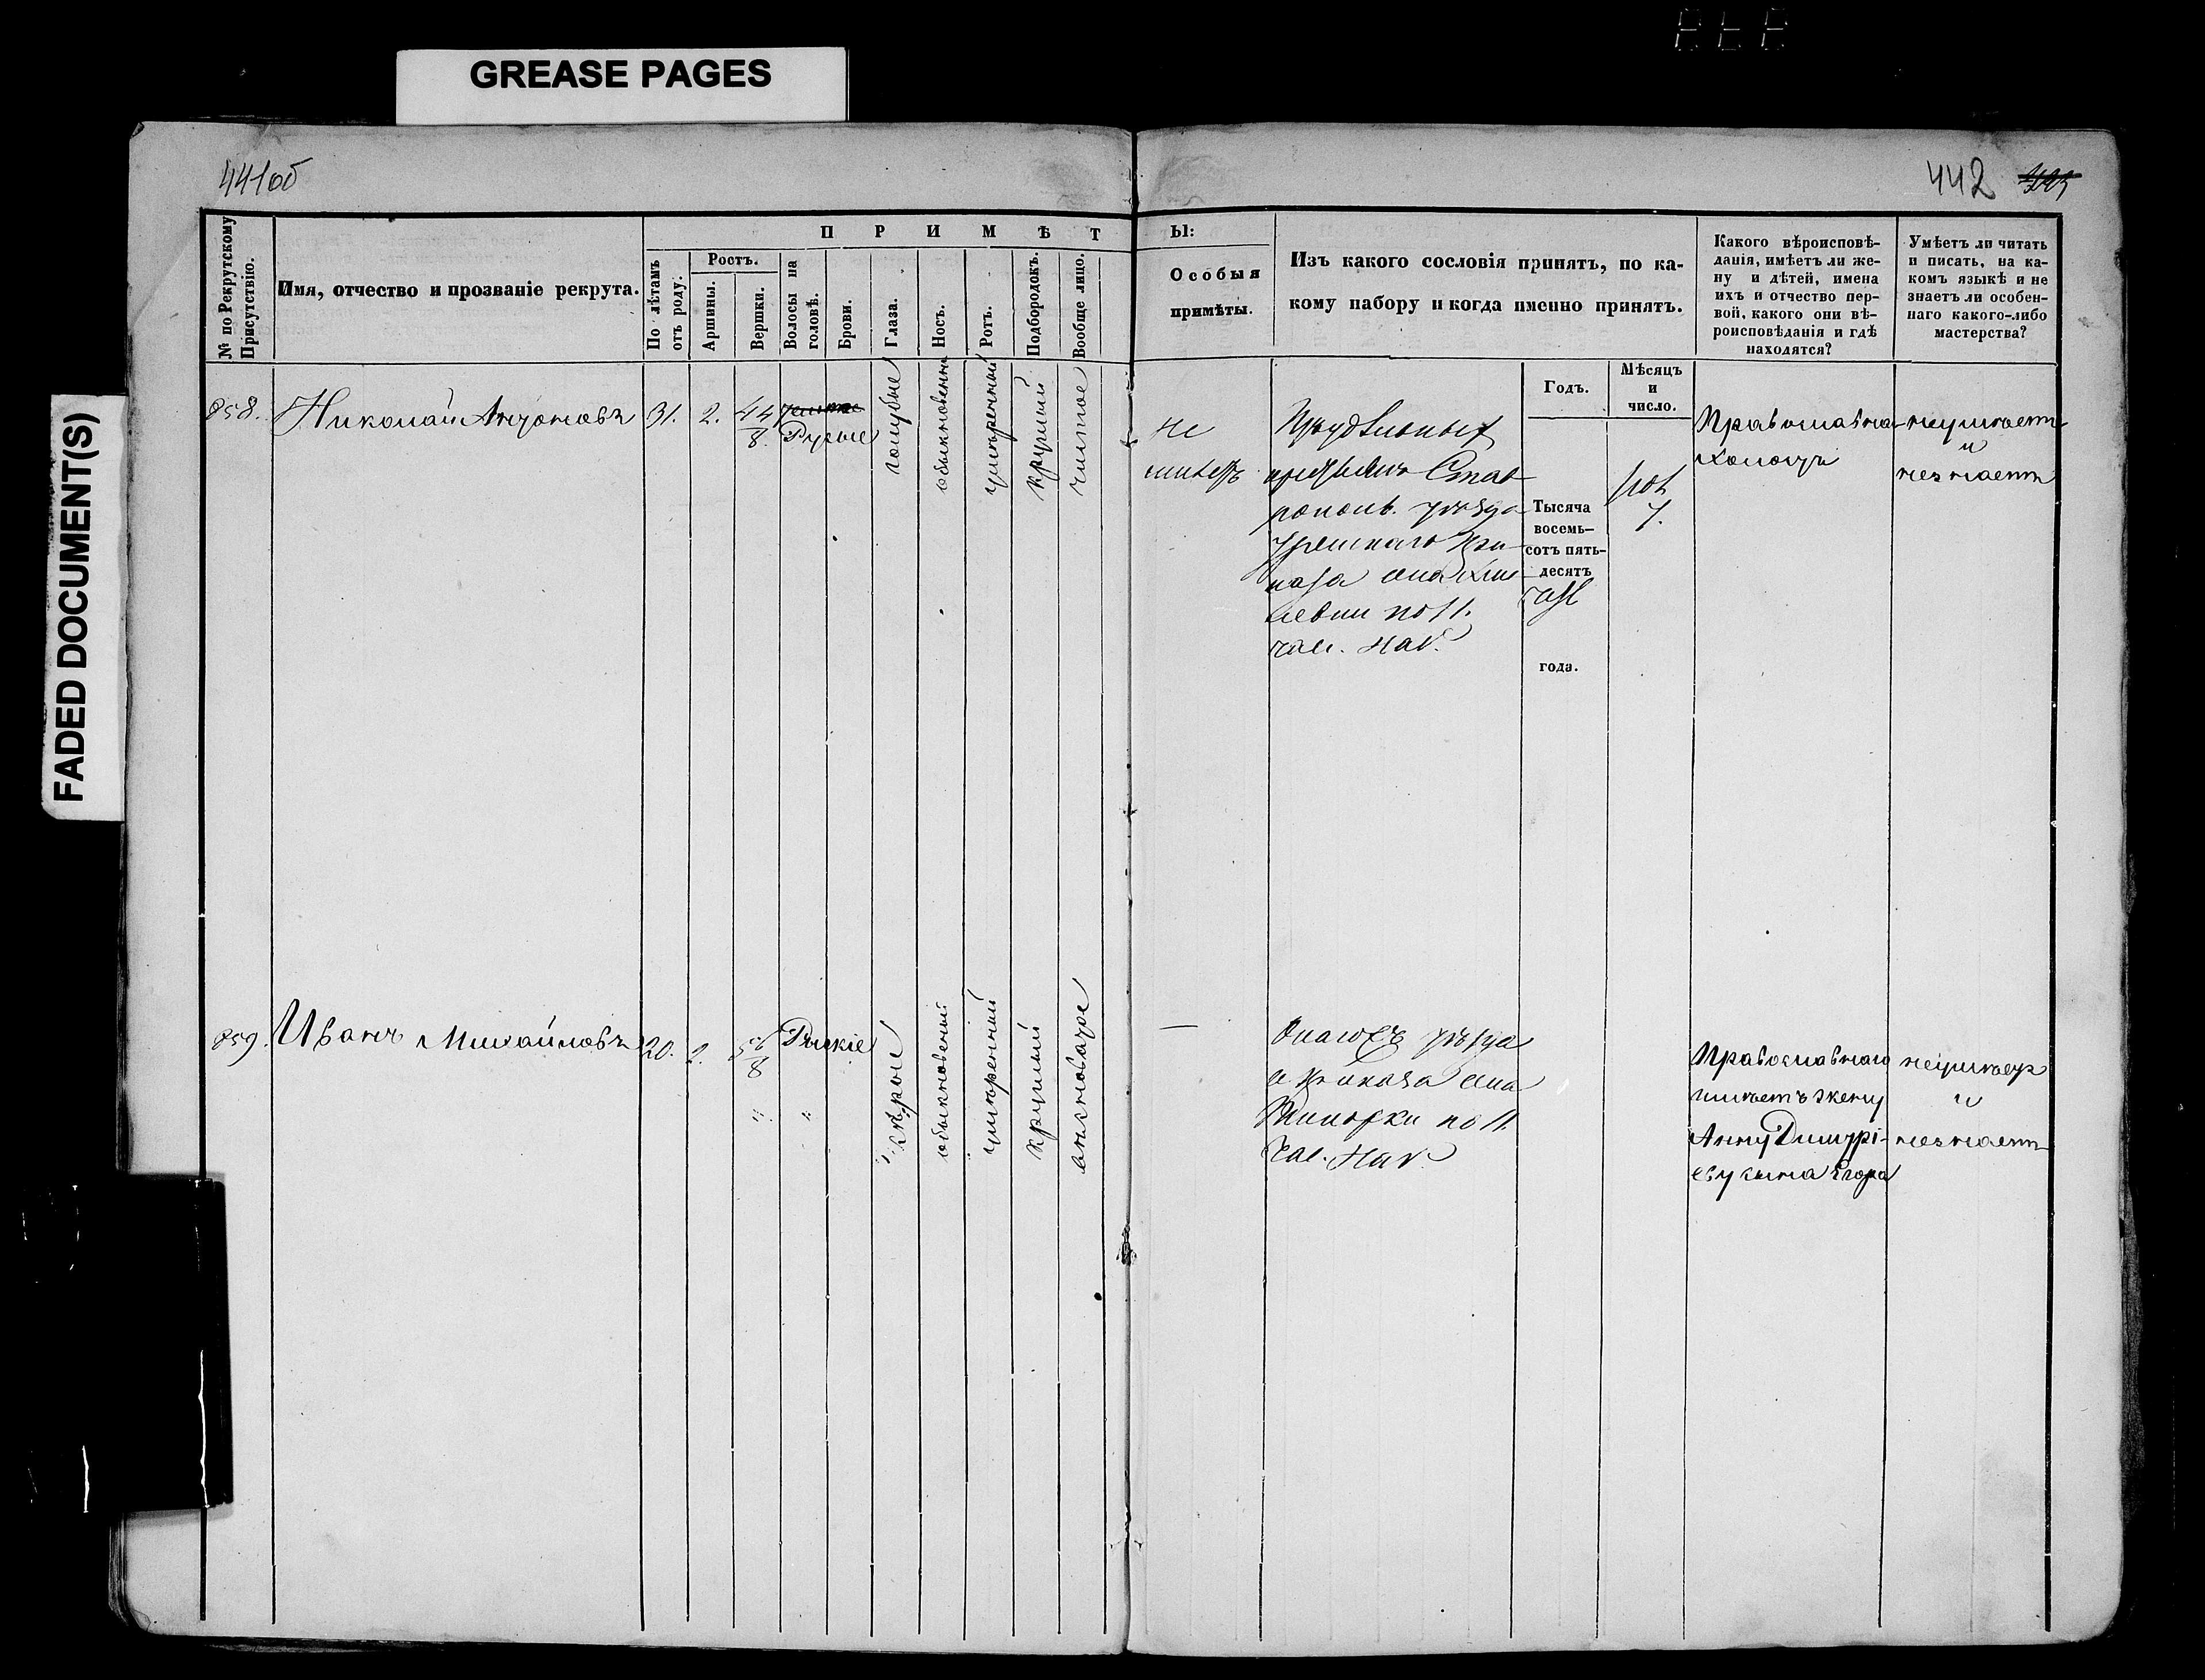 GREASE PAGES
FADED DOCUMENT(S)
441об
442
№ по Рекрутскому
Присутствію.
Имя, отчество и прозваніе рекрута.
ПРИМѢТ
Ы:
По лѣтамъ
отъ роду.
Ростъ.
Аршины.
Вершки.
Волосы на
головѣ.
Брови.
Глаза.
Носъ.
Ротъ.
Подбородокъ.
Вообще лицо.
Особыя
примѣты.
Изъ какого сословія принятъ, по ка-
кому набору и когда именно принятъ.
Какого вѣроисповѣ-
данія, имѣетъ ли же-
ну и дѣтей, имена
ихъ и отчество пер-
вой, какого они вѣ-
роисповѣданія и гдѣ
находятся?
Умѣетъ ли читать
и писать, на ка-
комъ языкѣ и не
знаетъ ли особен-
наго какого-либо
мастерства?
Годъ.
Мѣсяцъ
и
число.
858.
Николай Антоновъ
31.
2.
4 4/8.
Русые
голубые
обыкновенный
умѣренный
круглый
чистое
не
имѣетъ
Изъ удѣльныхъ
крестьянъ Став-
рополь. уѣзда
наго При-
каза села
по 11.
час. наб.
Тысяча
восемь-
сотъ пять-
десятъ
года.
7.
Православна
холостъ
неумѣетъ
и
незнаетъ
859.
Иванъ Михайловъ
20.
2.
5 6/8
"
Рыжіе
"
сѣрые
обыкновенный
умѣренный
круглый
—
уѣзда
и приказа села
по 11.
час. наб.
Православнаго
имѣетъ жену
Анну Дмитрі-
еву сына Егора
неумѣетъ
и
незнаетъ